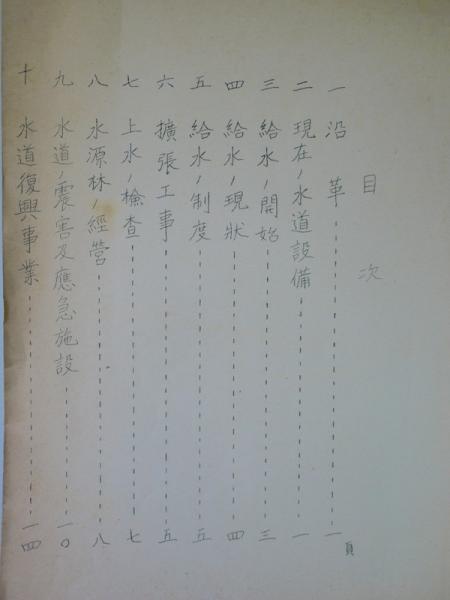 目次
一 沿革 一頁
二 現在ノ水道設備 一
三 給水ノ開始 三
四 給水ノ現狀 四
五 給水ノ制度 五
六 擴張工事 五
七 上水ノ檢查 七
八 水源林ノ經營 八
九 水道ノ震害及應急施設 一〇
十 水道復興事業 一四